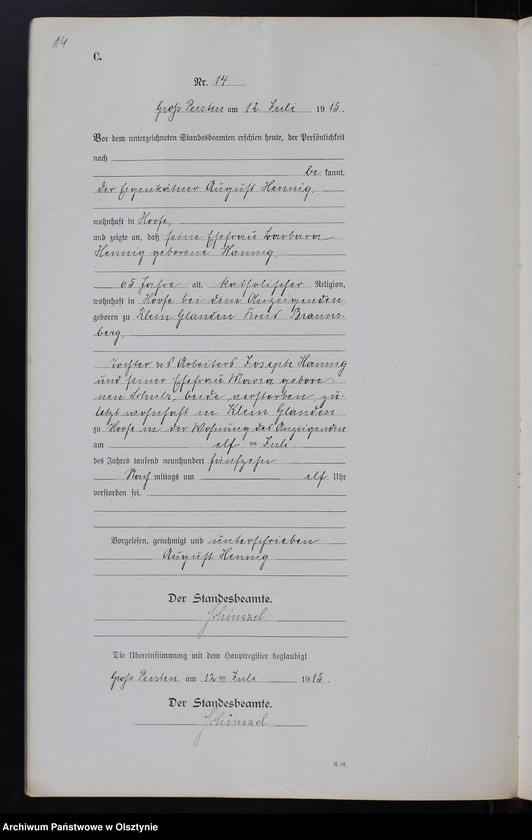 14
C.
Nr. 14
Groß Peisten am 12 Juli 1915.
Vor dem unterzeichneten Standesbeamten erschien heute, der Persönlichkeit
nach
be kannt,
der Eigenkätner August Hennig,
wohnhaft in Hoofe,
und zeigte an, daß seine Ehefrau Barbara
Hennig geborene Hannig,
65 Jahre alt, katholischer Religion,
wohnhaft in Hoofe bei dem Anzeigenden,
geboren zu Klein Glanden Kreis Brauns-
berg,
Tochter des Arbeiters Joseph Hannig
und seiner Ehefrau Maria gebore-
nen Schulz, beide verstorben zu-
letzt wohnhaft in Klein Glanden
zu Hoofe in der Wohnung des Anzeigenden
am elf ten Juli
des Jahres tausend neunhundert fünfzehn
Nach mittags um elf Uhr
verstorben sei.
Vorgelesen, genehmigt und unterschrieben
August Hennig
Der Standesbeamte.
Die Übereinstimmung mit dem Hauptregister beglaubigt
Groß Peisten am 12 ten Juli 1915.
Der Standesbeamte.
R.-R.
Archiwum Państwowe w Olsztynie